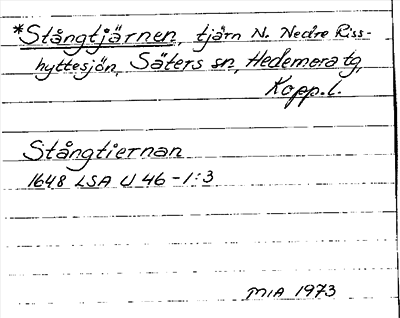 *Stångtjärnen, tjärn N. Nedre Riss-
hyttesjön, Säters sn, Hedemora tg,
Kopp. l.
Stångtiernan
1648 LSA U 46 - 1:3
MIA 1973